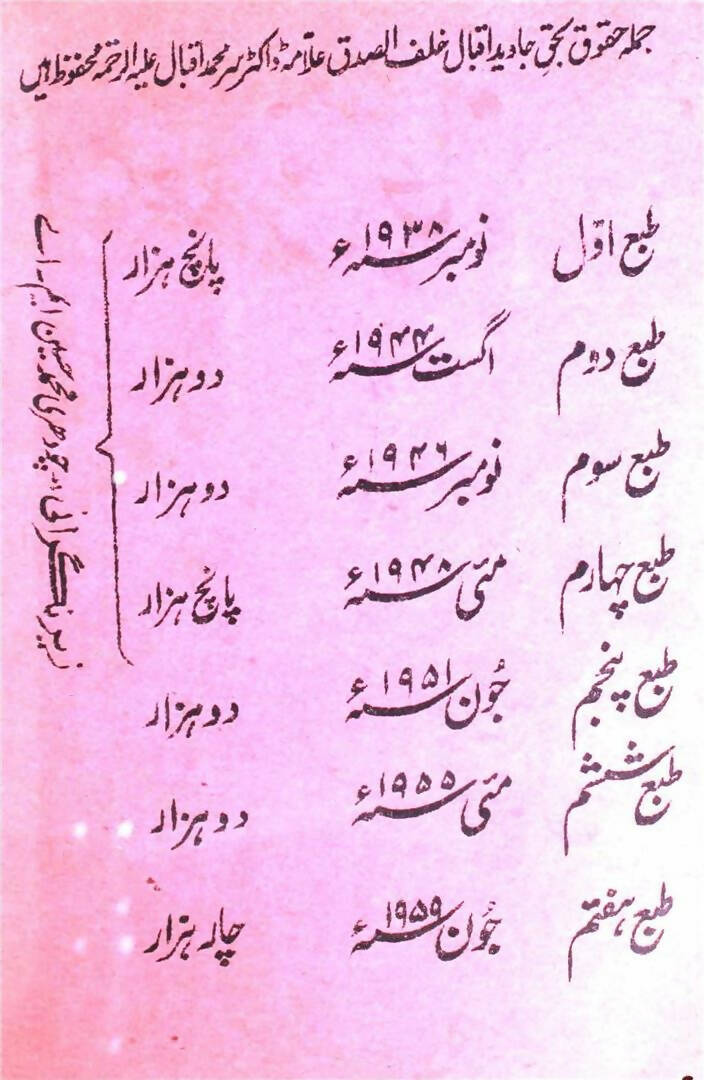 جملہ حقوق بحقِ جاوید اقبال خلف الصدق علامہ ڈاکٹر سر محمد اقبال علیہ الرحمۃ محفوظ ہیں
طبع اوّل نومبر ۱۹۳۸ء پانچ ہزار
طبع دوم اگست ۱۹۴۴ء دو ہزار
طبع سوم نومبر ۱۹۴۶ء دو ہزار
طبع چہارم مئی ۱۹۴۸ء پانچ ہزار
طبع پنجم جُون ۱۹۵۱ء دو ہزار
طبع ششم مئی ۱۹۵۵ء دو ہزار
طبع ہفتم جُون ۱۹۵۹ء چار ہزار
زیر نگرانی۔ چودھری محمد حسین ایم۔ اے